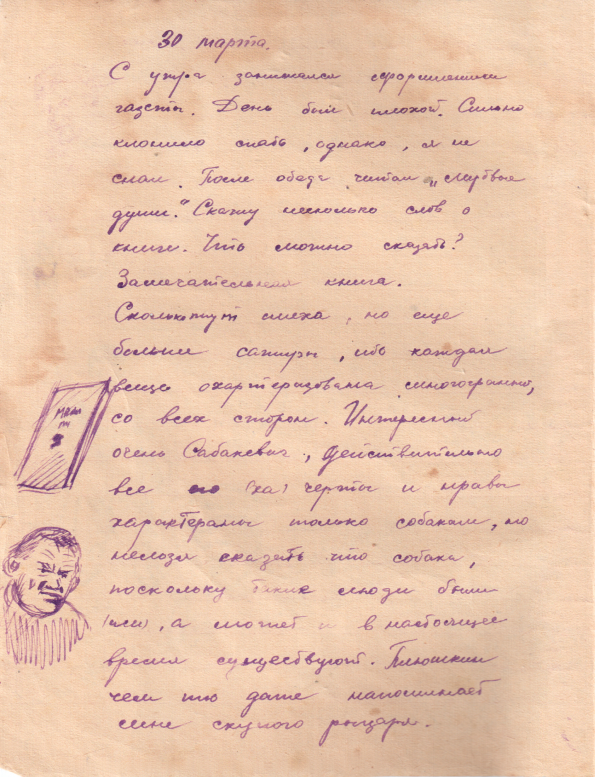 30 марта.
С утра занимался оформлением
газеты. День был плохой. Сильно
клонило спать, однако, я не
спал. После обеда читал „Мертвые
души." Скажу несколько слов о
книге. Что можно сказать?
Замечательная книга.
Сколько тут смеха, но еще
больше сатиры, ибо каждая
вещь охартеризована многогранно,
со всех сторон. Интересный
очень Сабакевич, действительно
все (ха) черты и нравы
характерны только собакам, но
нельзя сказать что собака,
поскольку такие люди были
(или), а может и в настоящее
время существуют. Плюшкин
чем то даже напоминает
мне скупого рыцаря.